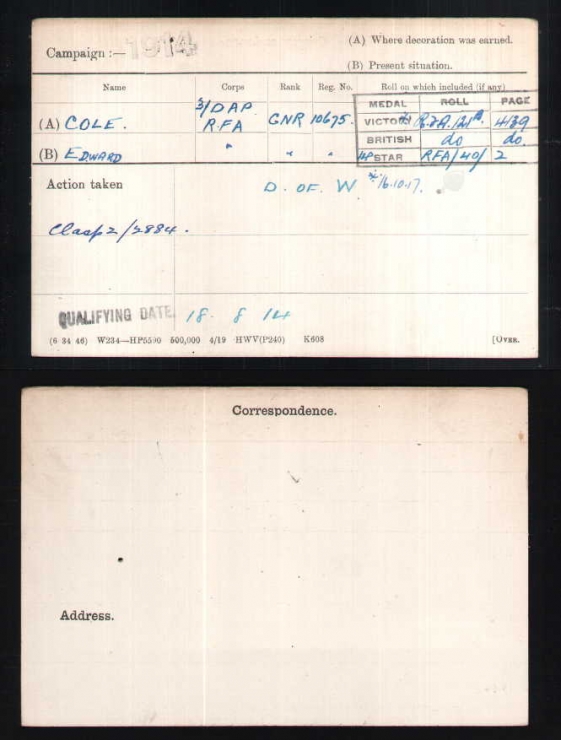 (A) Where decoration was earned.
Campaign :— 1914
(B) Present situation.
Name Corps Rank Reg. No. Roll on which included (if any)
MEDAL ROLL PAGE
3/DAP
(A) COLE. RFA GNR 10675. VICTORY R.F.A. 121B. 4139
BRITISH do do.
(B) EDWARD " " " STAR RFA/40/ 2
Action taken D. OF. W. 16.10.17.
Clasp 2/2884.
QUALIFYING DATE. 18. 8 14
(6 34 46) W234—HP5590 500,000 4/19 HWV(P240) K608 [OVER.
Correspondence.
Address.